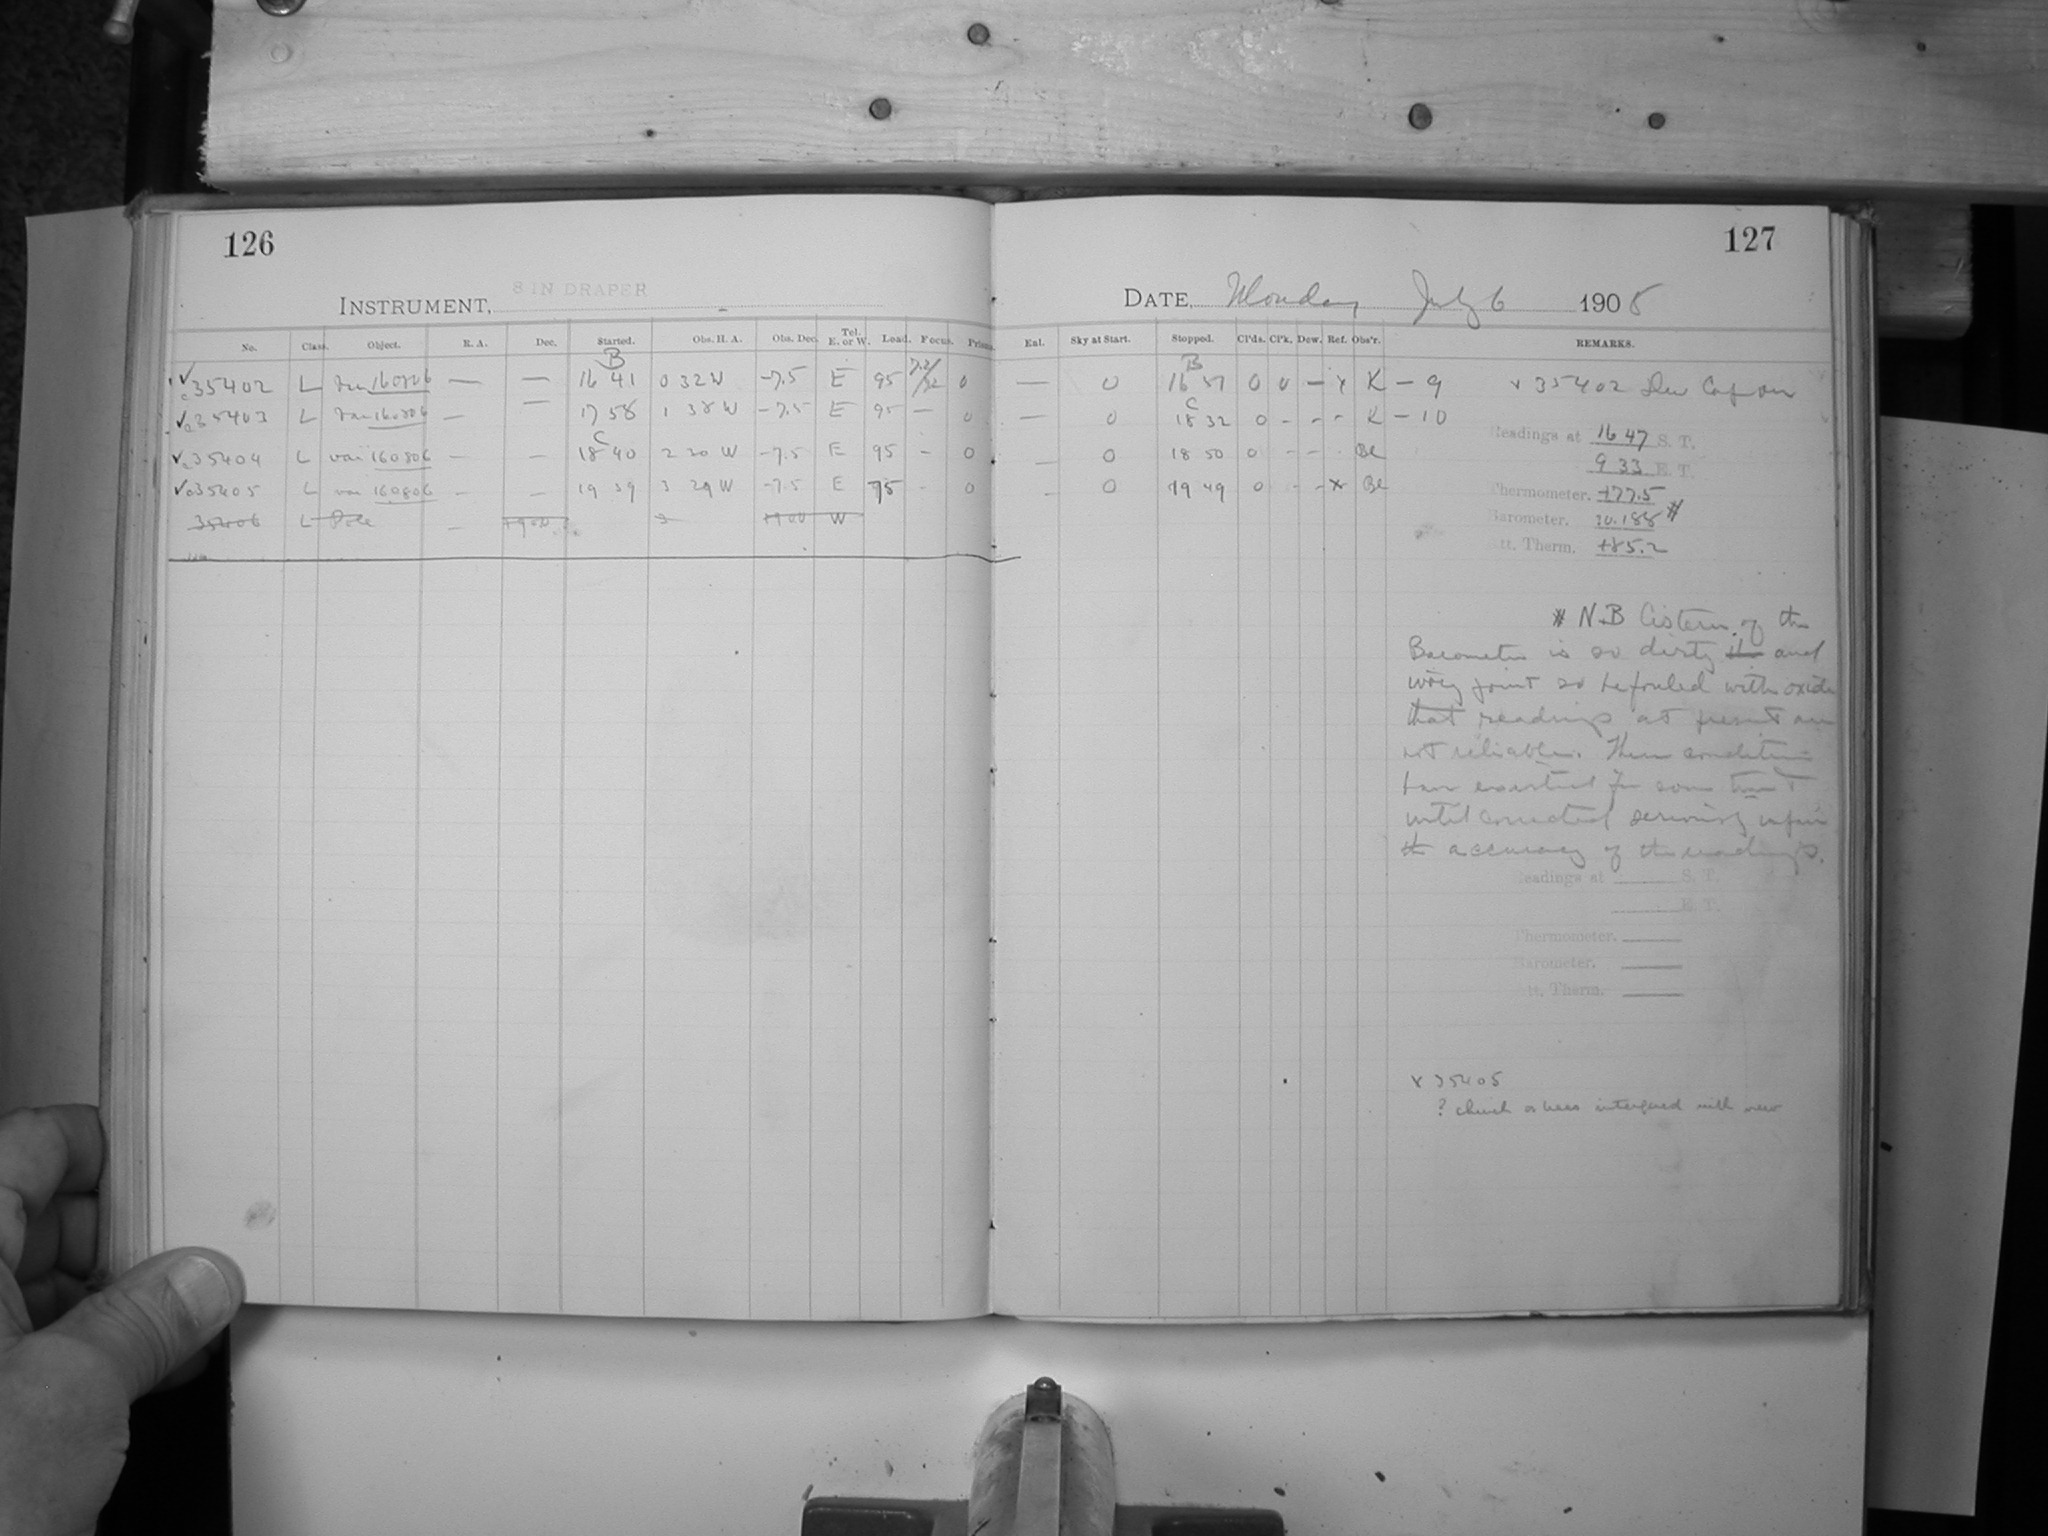 126
8 IN DRAPER
INSTRUMENT,
No. Class. Object. R. A. Dec. Started. Obs. H. A. Obs. Dec. Tel. E. or W. Load. Focus. Prisms.
B
35402 L 160806 — — 16 41 0 32 W -7.5 E 95 0
35403 L 160806 — — 17 58 1 38 W -7.5 E 95 — 0
C
35404 L var 160806 — — 18 40 2 20 W -7.5 E 95 - 0
35405 L var 160806 — — 19 39 3 29 W -7.5 E 75 - 0
35406 L Pole — +90 W
127
DATE, Monday July 6 1908
Ent. Sky at Start. Stopped. Cl'ds. Cl'k. Dew. Ref. Obs'r. REMARKS.
B
— 0 16 51 0 0 — x K — 9 x 35402 Dew Cap on
C
— 0 18 32 0 - - - K — 10
Readings at 16 47 S. T.
— 0 18 50 0 - - BC
9 33 E. T.
- 0 19 49 0 - - x BC
Thermometer. +77.5
Barometer. 30.188 #
Att. Therm. +85.2
# N.B Cistern of the
Barometer is so dirty the and
ivory point so befouled with oxide
that readings at present are
not reliable. These conditions
have existed for some time &
until corrected seriously impair
the accuracy of the readings.
Readings at S. T.
E. T.
Thermometer.
Barometer.
Att. Therm.
x 35405
? church or trees interfered with view